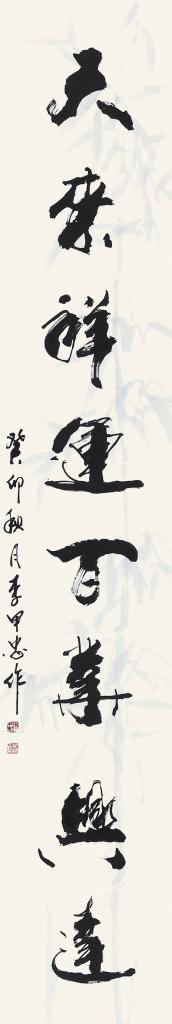 天来祥運百業興達
癸卯秋月李甲忠作